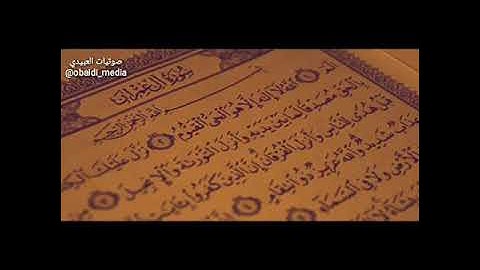 صوتيات العبيدي
@obaidi_media
سورة آل عمران
بسم الله الرحمن الرحيم
الم ١ الله لا إله إلا هو الحي القيوم ٢ نزل عليك الكتاب
بالحق مصدقا لما بين يديه وأنزل التوراة والإنجيل ٣
من قبل هدى للناس وأنزل الفرقان إن الذين كفروا بآيات
عذاب شديد والله عزيز ذو انتقام ٤
الأرض ولا في السماء ٥